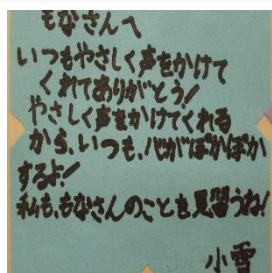 もなさんへ
いつもやさしく声をかけて
くれてありがとう!
やさしく声をかけてくれる
から、いつも、心がぽかぽか
するよ!
私も、もなさんのことを見習うね!
小雪